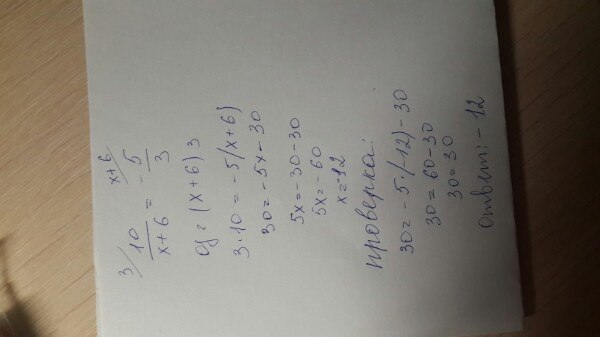 3/ 10/(x+6) = x+6/ -5/3
ОД: (x+6) 3
3·10=-5(x+6)
30=-5x-30
5x=-30-30
5x=-60
x=-12
проверка:
30=-5·(-12)-30
30=60-30
30=30
ответ:-12